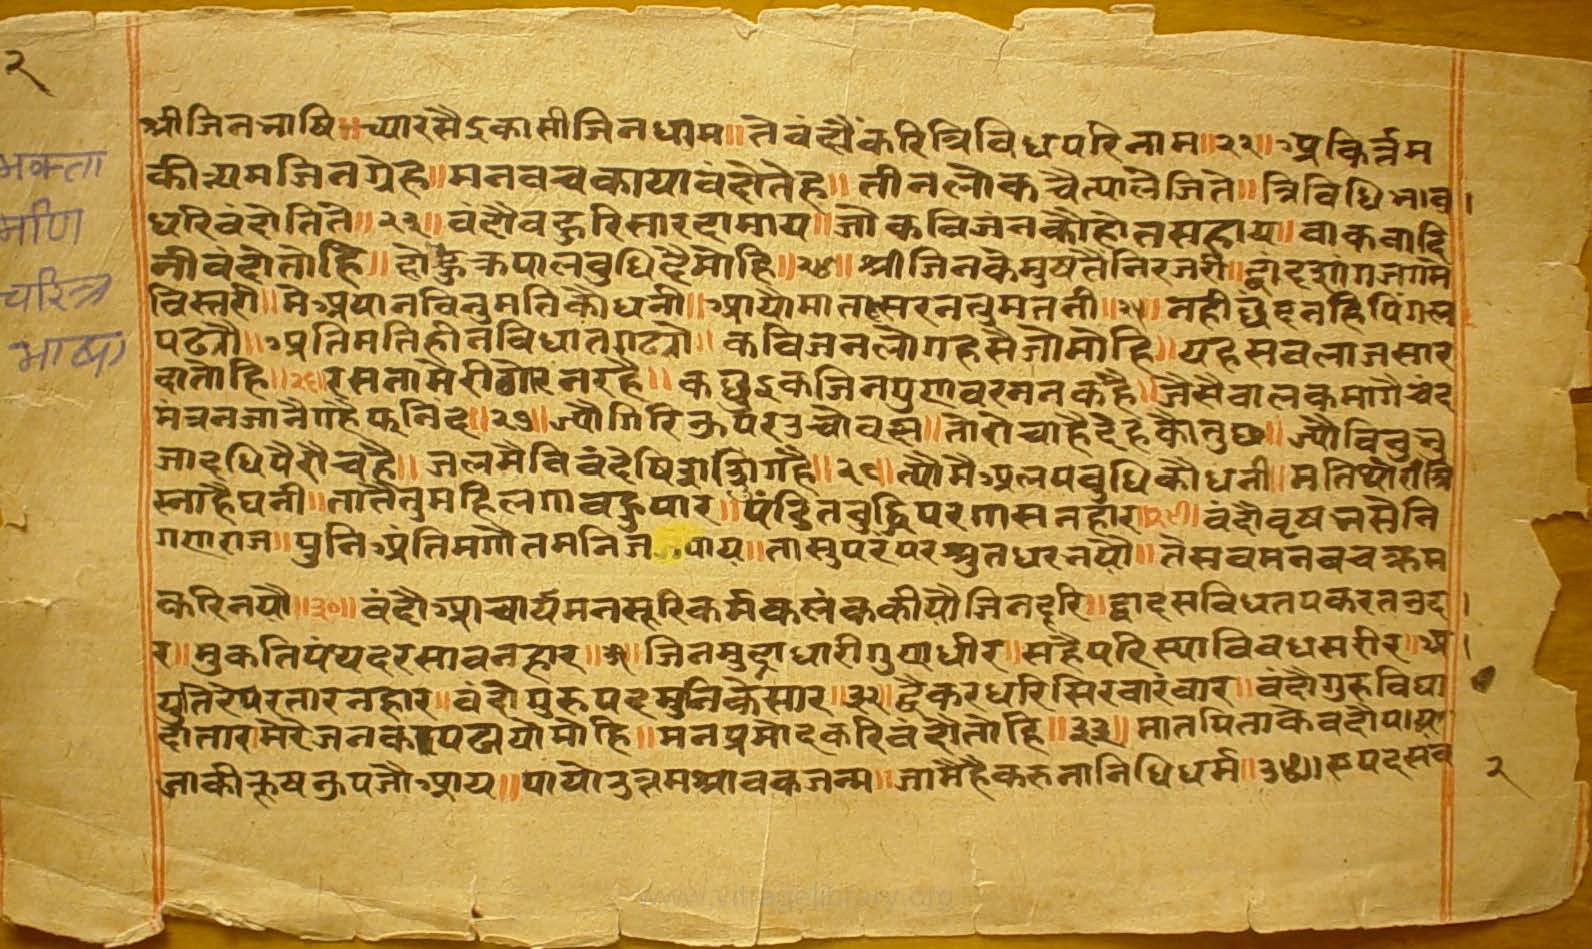 २
भक्ता
चरित्र
भाषा
श्रीजिनभाषि॥ च्यारसैऽकासीजिनधाम॥ ते वंद्यौं करि त्रिविधपरिनाम॥२२॥ अकिर्त्तम
की त्यमजिनग्रेह॥ मनवचकाया वंदो तेह॥ तीनलोक चैत्याले जिते॥ त्रिविधि भाव
धरि वंदो तिते॥२३॥ वंदौ वहुरि सारदामाय॥ जो कविजंनकौ होत सहाय॥ वाकवादि
नी वंदो तोहि॥ होहु क्रपाल बुधि दै मोहि॥२४॥ श्रीजिनके मुषतै निरजरी॥ द्वादशांग जगमे
विस्तरी॥ मे अयान विनु मतिकौ धनी॥ आयो माता सरन तुमतनी॥२५॥ नही छंद नहि पिंगल
पढ्यौ॥ अति मतिहीन विधात गढ्यो॥ कविजन लोग हसै जो मोहि॥ यह सव लाज सार
दा तोहि॥२६॥ रसना मेरी गोर न रहै॥ कछुऽक जिनगुणवरनन कहै॥ जैसै वालक मागै चंद
मंत्र न जानै गहै फनिंद॥२७॥ ज्यौ गिरि ऊपर उचो वृस॥ तोरो चाहै देहकौ तुछ॥ ज्यौ विनु नु
जलमै विवं देषि गहै॥२८॥ त्यौ मै अलपबुधिकौ धनी॥ मति थोरी त्रि
स्ना है घनी॥ तातै तुमहि लगावहु पार॥ पंडित बुद्धि परगासनहार॥२९॥ वंदौ वृषभसैनि
गणराज॥ पुनि अंतिम गौतम निज पाय॥ तासु परंपर श्रुतधर भयौ॥ ते सव मन वच क्रम
करि नयौ॥३०॥ वंदौ आचार्य मनसूरि कर्म कलंक कीयौ जिन दूरि॥ द्वादसविध तप करत उद
र॥ मुकतिपंथ दरसावनहार॥३१॥ जिनमुद्राधारी गुणधीर॥ सहै परिस्या विवध सरीर॥
वंदो गुरुपद मुनिके सार॥३२॥ द्वै कर धरि सिर वारंवार॥ वंदौ गुरु विद्या
दातार मेरे जनक पढायो मोहि॥ मन प्रमोद करि वंदौ तोहि॥३३॥ मातपिताके वदौ पाय
जाकी कूष ऊपजौ आय॥ पायो उत्तम श्रावक जन्म॥ जामै है करुनानिधि धर्म॥३४॥
२
www.vitragelibrary.org